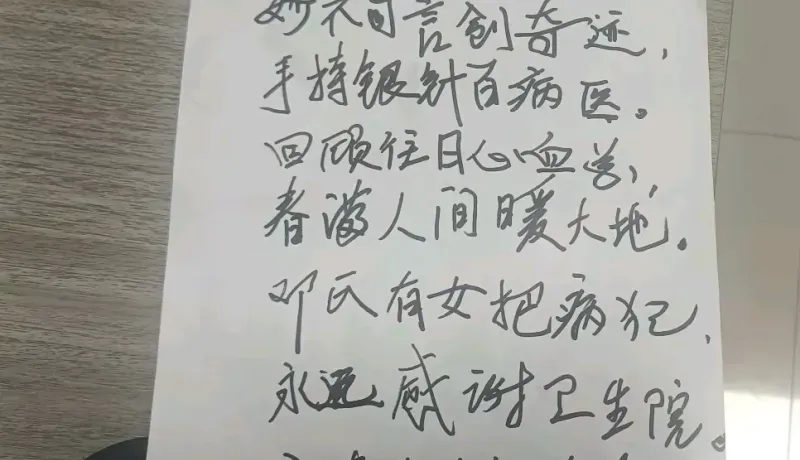 妙不可言创奇迹，
手持银针百病医。
回顾往日心血苦，
春满人间暖大地。
邓氏有女把病犯，
永远感谢卫生院。